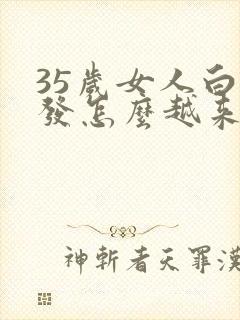 35歲女人白
發怎麼越來
神斬者天罪漢